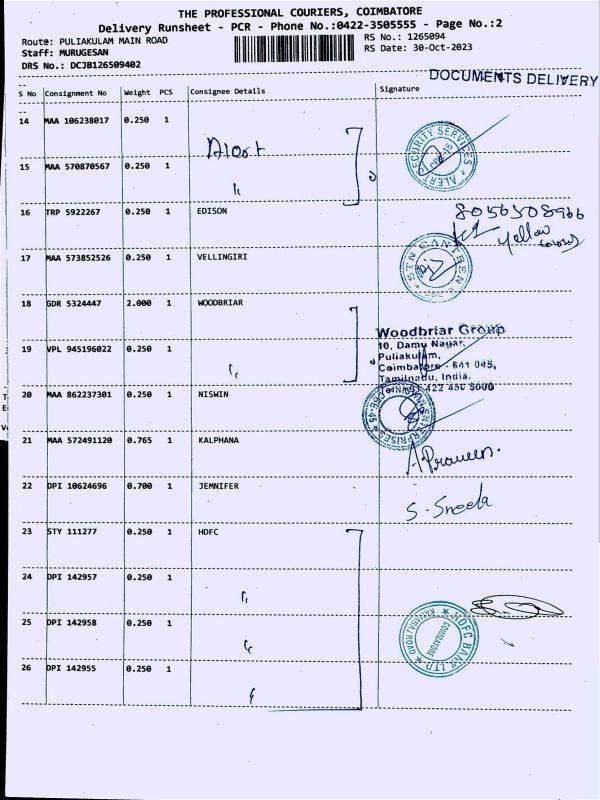 THE PROFESSIONAL COURIERS, COIMBATORE
Delivery Runsheet - PCR - Phone No.:0422-3505555 - Page No.:2
Route: PULIAKULAM MAIN ROAD
RS No.: 1265094
Staff: MURUGESAN
RS Date: 30-Oct-2023
DRS No.: DCJB126509402
DOCUMENTS DELIVERY
S No Consignment No Weight PCS Consignee Details Signature
14 MAA 106238017 0.250 1
Alert
15 MAA 570870567 0.250 1
ALERT SECURITY SERVICES
16 TRP 5922267 0.250 1 EDISON
8056508966
Yellow
17 MAA 573852526 0.250 1 VELLINGIRI
CANTEEN
18 GDR 5324447 2.000 1 WOODBRIAR
Woodbriar Group
10, Damu Nagar,
Puliakulam,
Coimbatore - 641 045,
Tamilnadu, India.
19 VPL 945196022 0.250 1
20 MAA 862237301 0.250 1 NISWIN
21 MAA 572491120 0.765 1 KALPHANA
A Praveen.
22 DPI 10624696 0.700 1 JEMNIFER
S. Sneela
23 STY 111277 0.250 1 HDFC
24 DPI 142957 0.250 1
25 DPI 142958 0.250 1
HDFC BANK LTD
COIMBATORE
26 DPI 142955 0.250 1